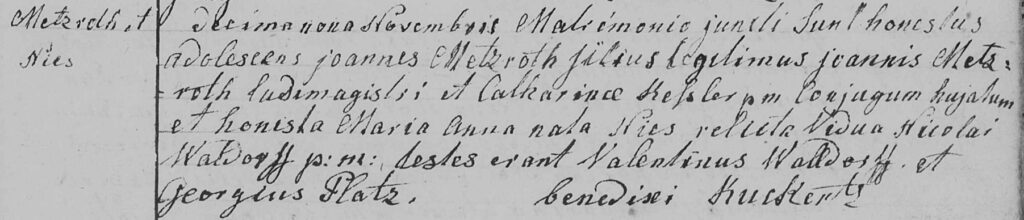 Metzroth et
Nies
decima nona Novembris Matrémonio juncti Sunt honestus
adolescens joannes Metzroth filius legitimus joannis Metz-
roth ludimagistri et Catharinæ Kessler pm Conjugum hujatum
et honesta Maria Anna nata Nies relicta Vidua Nicolai
Waldorff p: m: testes erant Valentinus Walldorff. et
Georgius Platz. benedixi Kuckertz